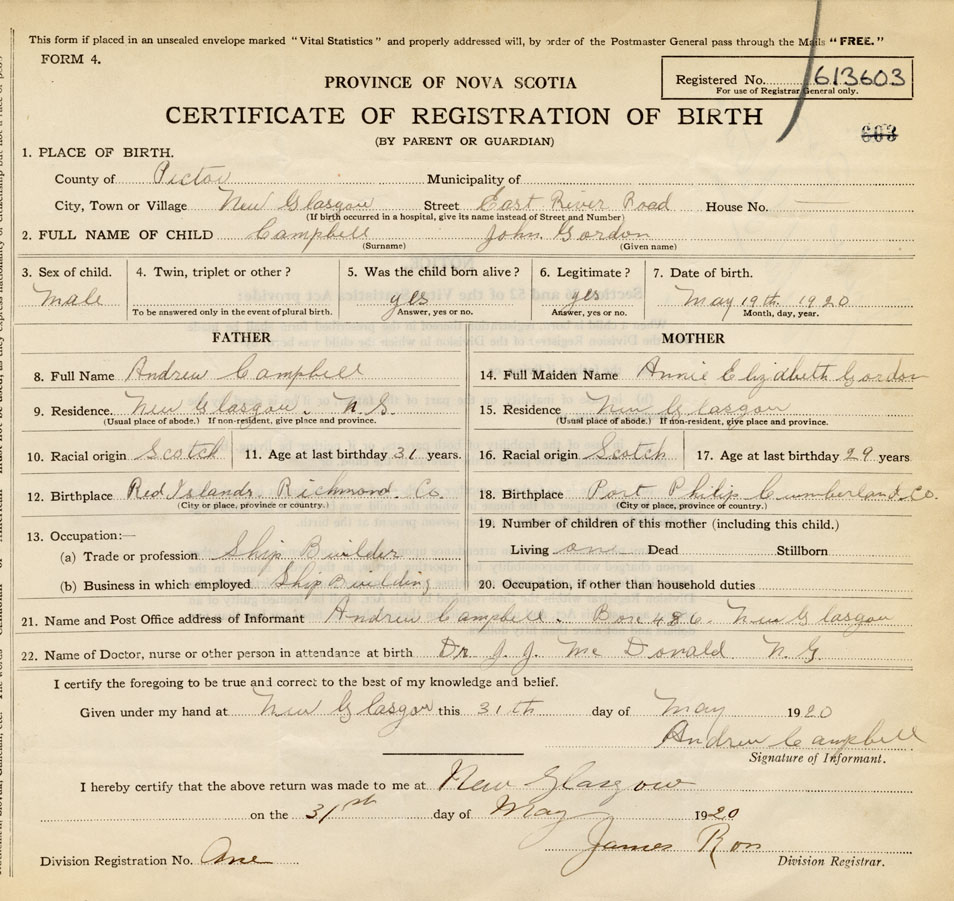 This form if placed in an unsealed envelope marked "Vital Statistics" and properly addressed will, by order of the Postmaster General pass through the Mails "FREE."
FORM 4.
Registered No. 613603
For use of Registrar General only.
PROVINCE OF NOVA SCOTIA
CERTIFICATE OF REGISTRATION OF BIRTH
603
(BY PARENT OR GUARDIAN)
1. PLACE OF BIRTH.
County of Pictou Municipality of
City, Town or Village New Glasgow Street East River Road House No.
(If birth occurred in a hospital, give its name instead of Street and Number)
2. FULL NAME OF CHILD Campbell John Gordon
(Surname) (Given name)
3. Sex of child. 4. Twin, triplet or other? 5. Was the child born alive? 6. Legitimate? 7. Date of birth.
Male yes yes May 19th 1920
To be answered only in the event of plural birth. Answer, yes or no. Answer, yes or no. Month, day, year.
FATHER MOTHER
8. Full Name Andrew Campbell 14. Full Maiden Name Annie Elizabeth Gordon
9. Residence. New Glasgow. N.S. 15. Residence New Glasgow
(Usual place of abode.) If non-resident, give place and province. (Usual place of abode.) If non-resident, give place and province.
10. Racial origin Scotch 11. Age at last birthday 31 years. 16. Racial origin Scotch 17. Age at last birthday 29 years
12. Birthplace Red Islands. Richmond. Co. 18. Birthplace Port Philip Cumberland. Co.
(City or place, province or country.) (City or place, province or country.)
13. Occupation:— 19. Number of children of this mother (including this child.)
(a) Trade or profession Ship Builder Living on Dead Stillborn
(b) Business in which employed Ship Building 20. Occupation, if other than household duties
21. Name and Post Office address of Informant Andrew Campbell. Box 486. New Glasgow
22. Name of Doctor, nurse or other person in attendance at birth Dr J. J. Mc Donald N G
I certify the foregoing to be true and correct to the best of my knowledge and belief.
Given under my hand at New Glasgow this 31th day of May 1920
Andrew Campbell
Signature of Informant.
I hereby certify that the above return was made to me at New Glasgow
on the 31st day of May 1920
James Ross
Division Registration No. One Division Registrar.